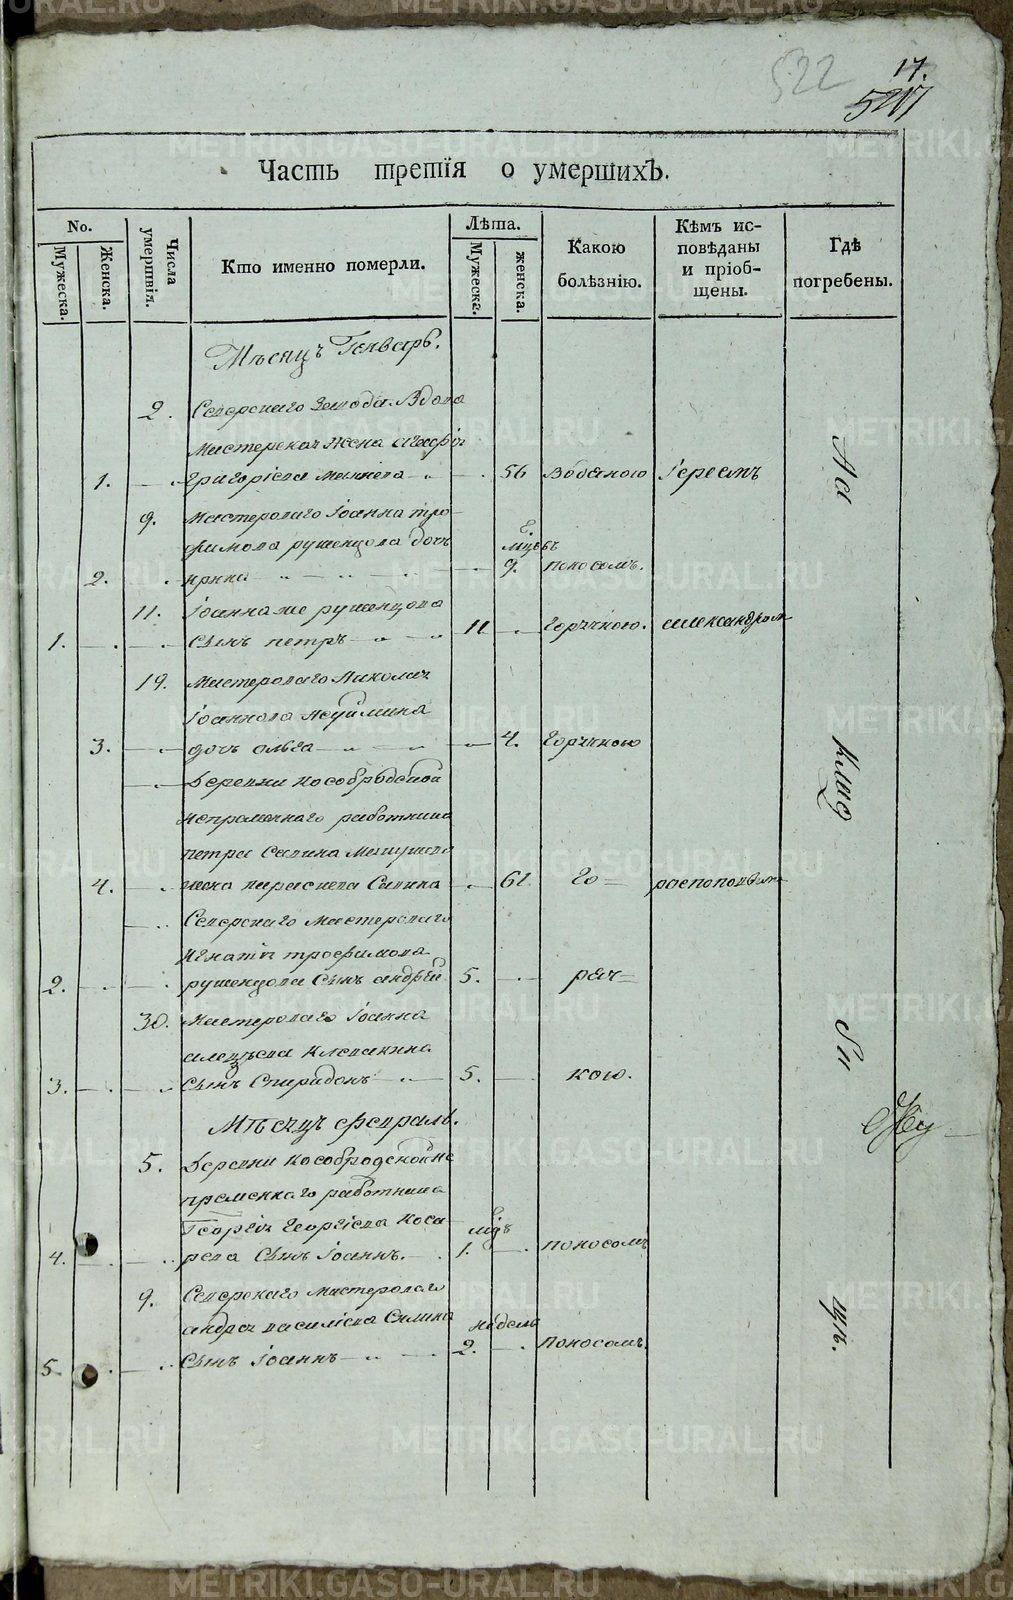 522
17.
5217
Часть третія о умершихъ.
No.
Мужеска.
Женска.
Числа умертвія.
Кто именно померли.
Лѣта.
Мужеска.
женска.
Какою болѣзнію.
Кѣмъ исповѣданы и пріобщены.
Гдѣ погребены.
Мѣсяцъ Генварь.
2. Северскаго завода Вдова
Мастерская жена агафія
1. Григоріева 56 Іереемъ
9. Мастероваго Іоанна тро-
фимова рушенцова дочь мцовъ
2. ирина 9. поносомъ.
11. Іоанна же рушенцова
1. Сынъ петръ 11 Горячкою. александромъ
19. Мастероваго Николая
Іоаннова
3. дочь ольга 4. Горячкою
Деревни Кособродской
непременнаго работника
петра Савина
4. жена параскева Савина 61 го= распоповымъ
Северскаго Мастероваго
Игнатія трофимова
2. рушенцова Сынъ андрей 5. ряч=
30. Мастероваго Іоанна
алещеева Клепакина
3. Сынъ Спиридонъ 5. кою.
Мѣсяцъ февраль.
5. Деревни Кособродской не
пременнаго работника
Георгія Георгіева Коса-
4. рева Сынъ Іоаннъ. 1. поносомъ
9. Северскаго Мастероваго
андрея василіева Силина недель
5. Сынъ Іоаннъ 2. Поносомъ.
На
кладби
щѣ.